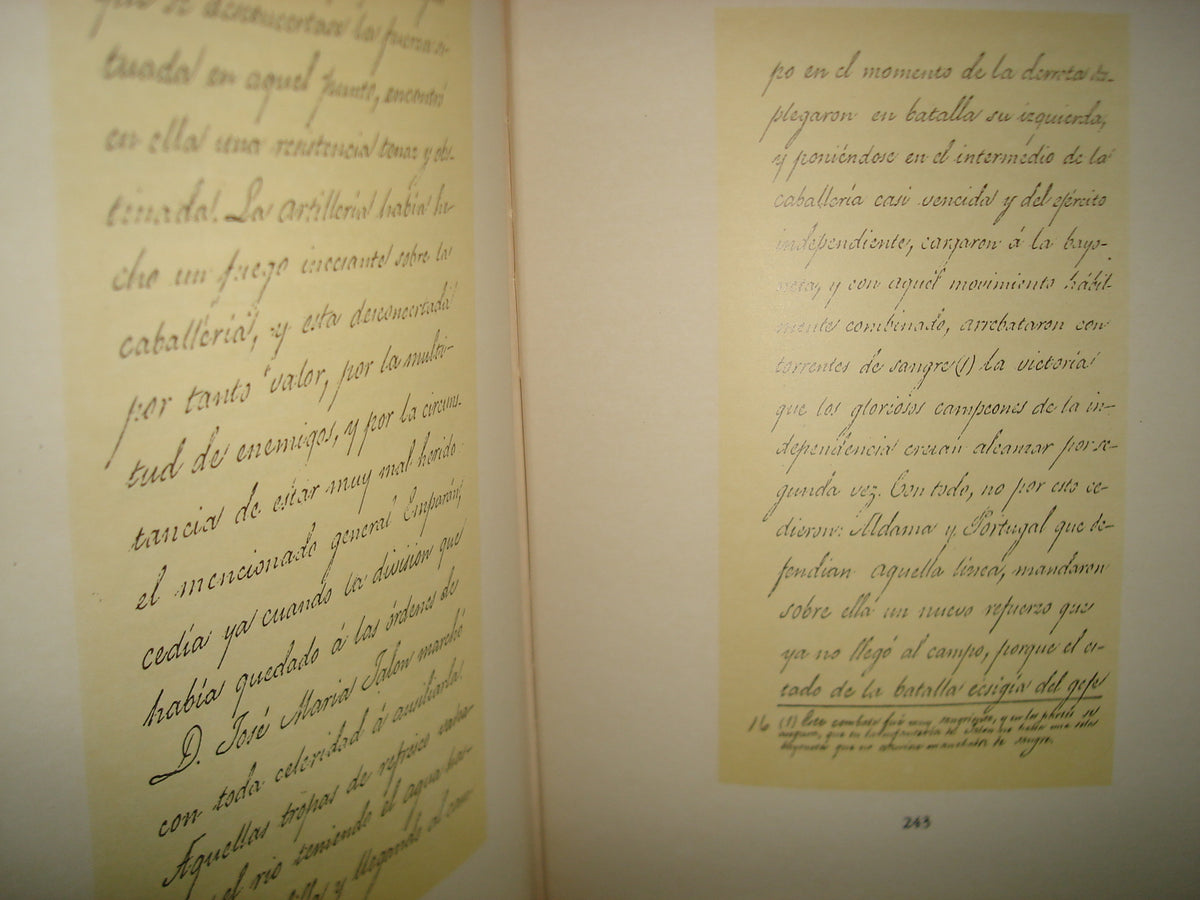 que se desconcertase la fuerza si-
tuada en aquel punto, encontró
en ella una resistencia tenaz y obs-
tinada. La artillería había he-
cho un fuego incesante sobre la
caballería, y esta desconcertada
por tanto valor, por la multi-
tud de enemigos, y por la circuns-
tancia de estar muy mal herido
el mencionado general Emparán,
cedía ya cuando la división que
había quedado á las órdenes de
D. José Maria Jalon marchó
con toda celeridad á auxiliarla.
Aquellas tropas de refresco
el rio teniendo el agua has-
y llegando al cam-
po en el momento de la derrota des-
plegaron en batalla su izquierda,
y poniéndose en el intermedio de la
caballería casi vencida y del ejército
independiente, cargaron á la bayo-
neta, y con aquel movimiento hábil-
mente combinado, arrebataron con
torrentes de sangre (1) la victoria
que los gloriosos campeones de la in-
dependencia creian alcanzar por se-
gunda vez. Con todo, no por esto ce-
dieron: Aldama y Portugal que de-
fendian aquella línea, mandaron
sobre ella un nuevo refuerzo que
ya no llegó al campo, porque el es-
tado de la batalla ecsigía del gefe
16 (1) Este combate fué muy sangriento, y en los partes se
asegura, que en la de Jalon no habia una sola
bayoneta que no estuviese manchada de sangre.
243